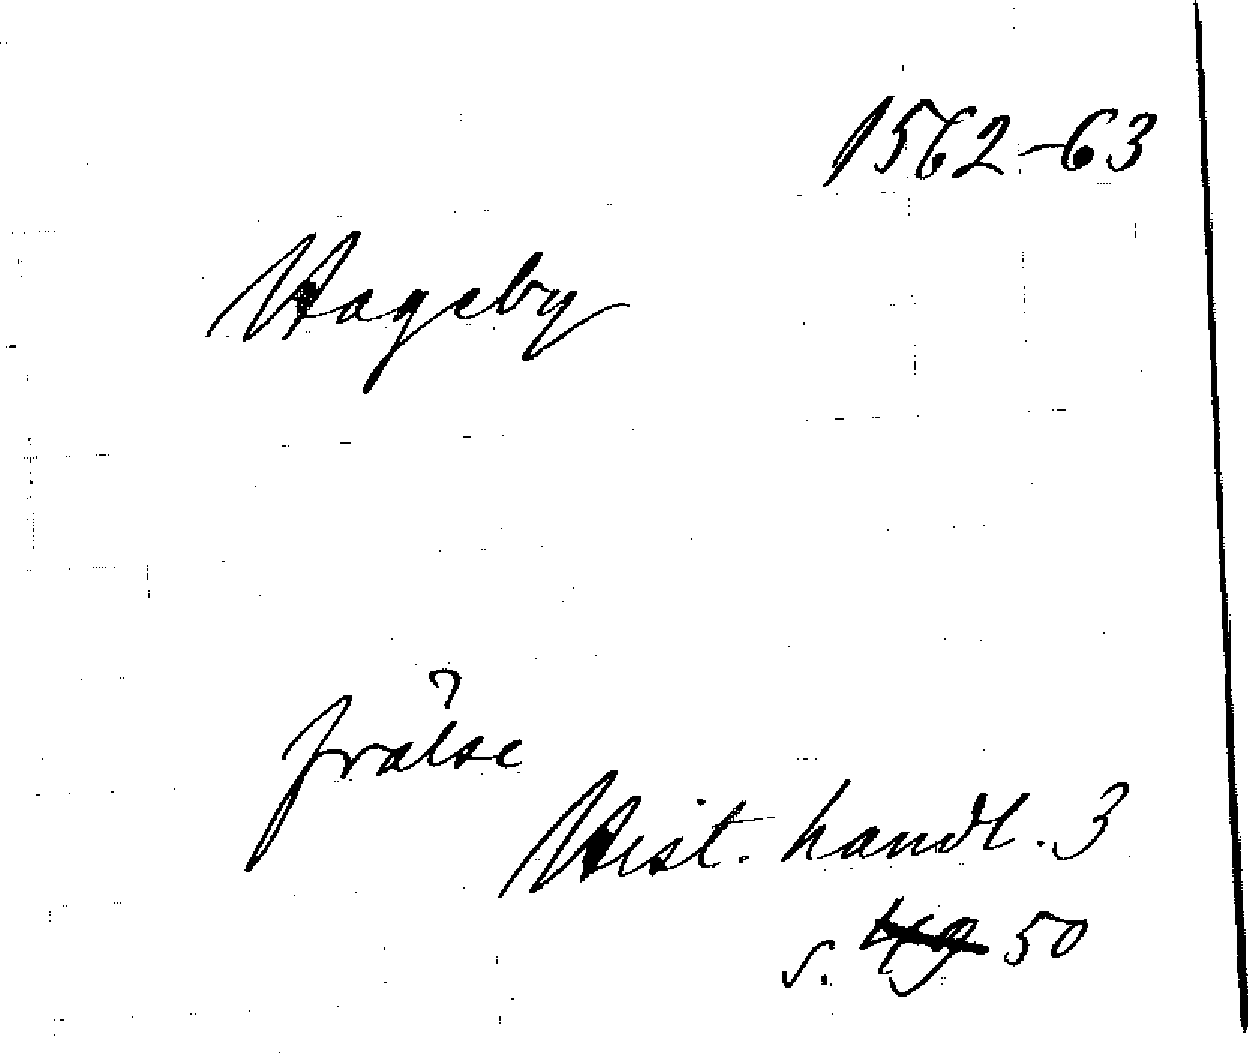 1562-63
Hageby
frälse
Hist. handl. 3
s. 49 50